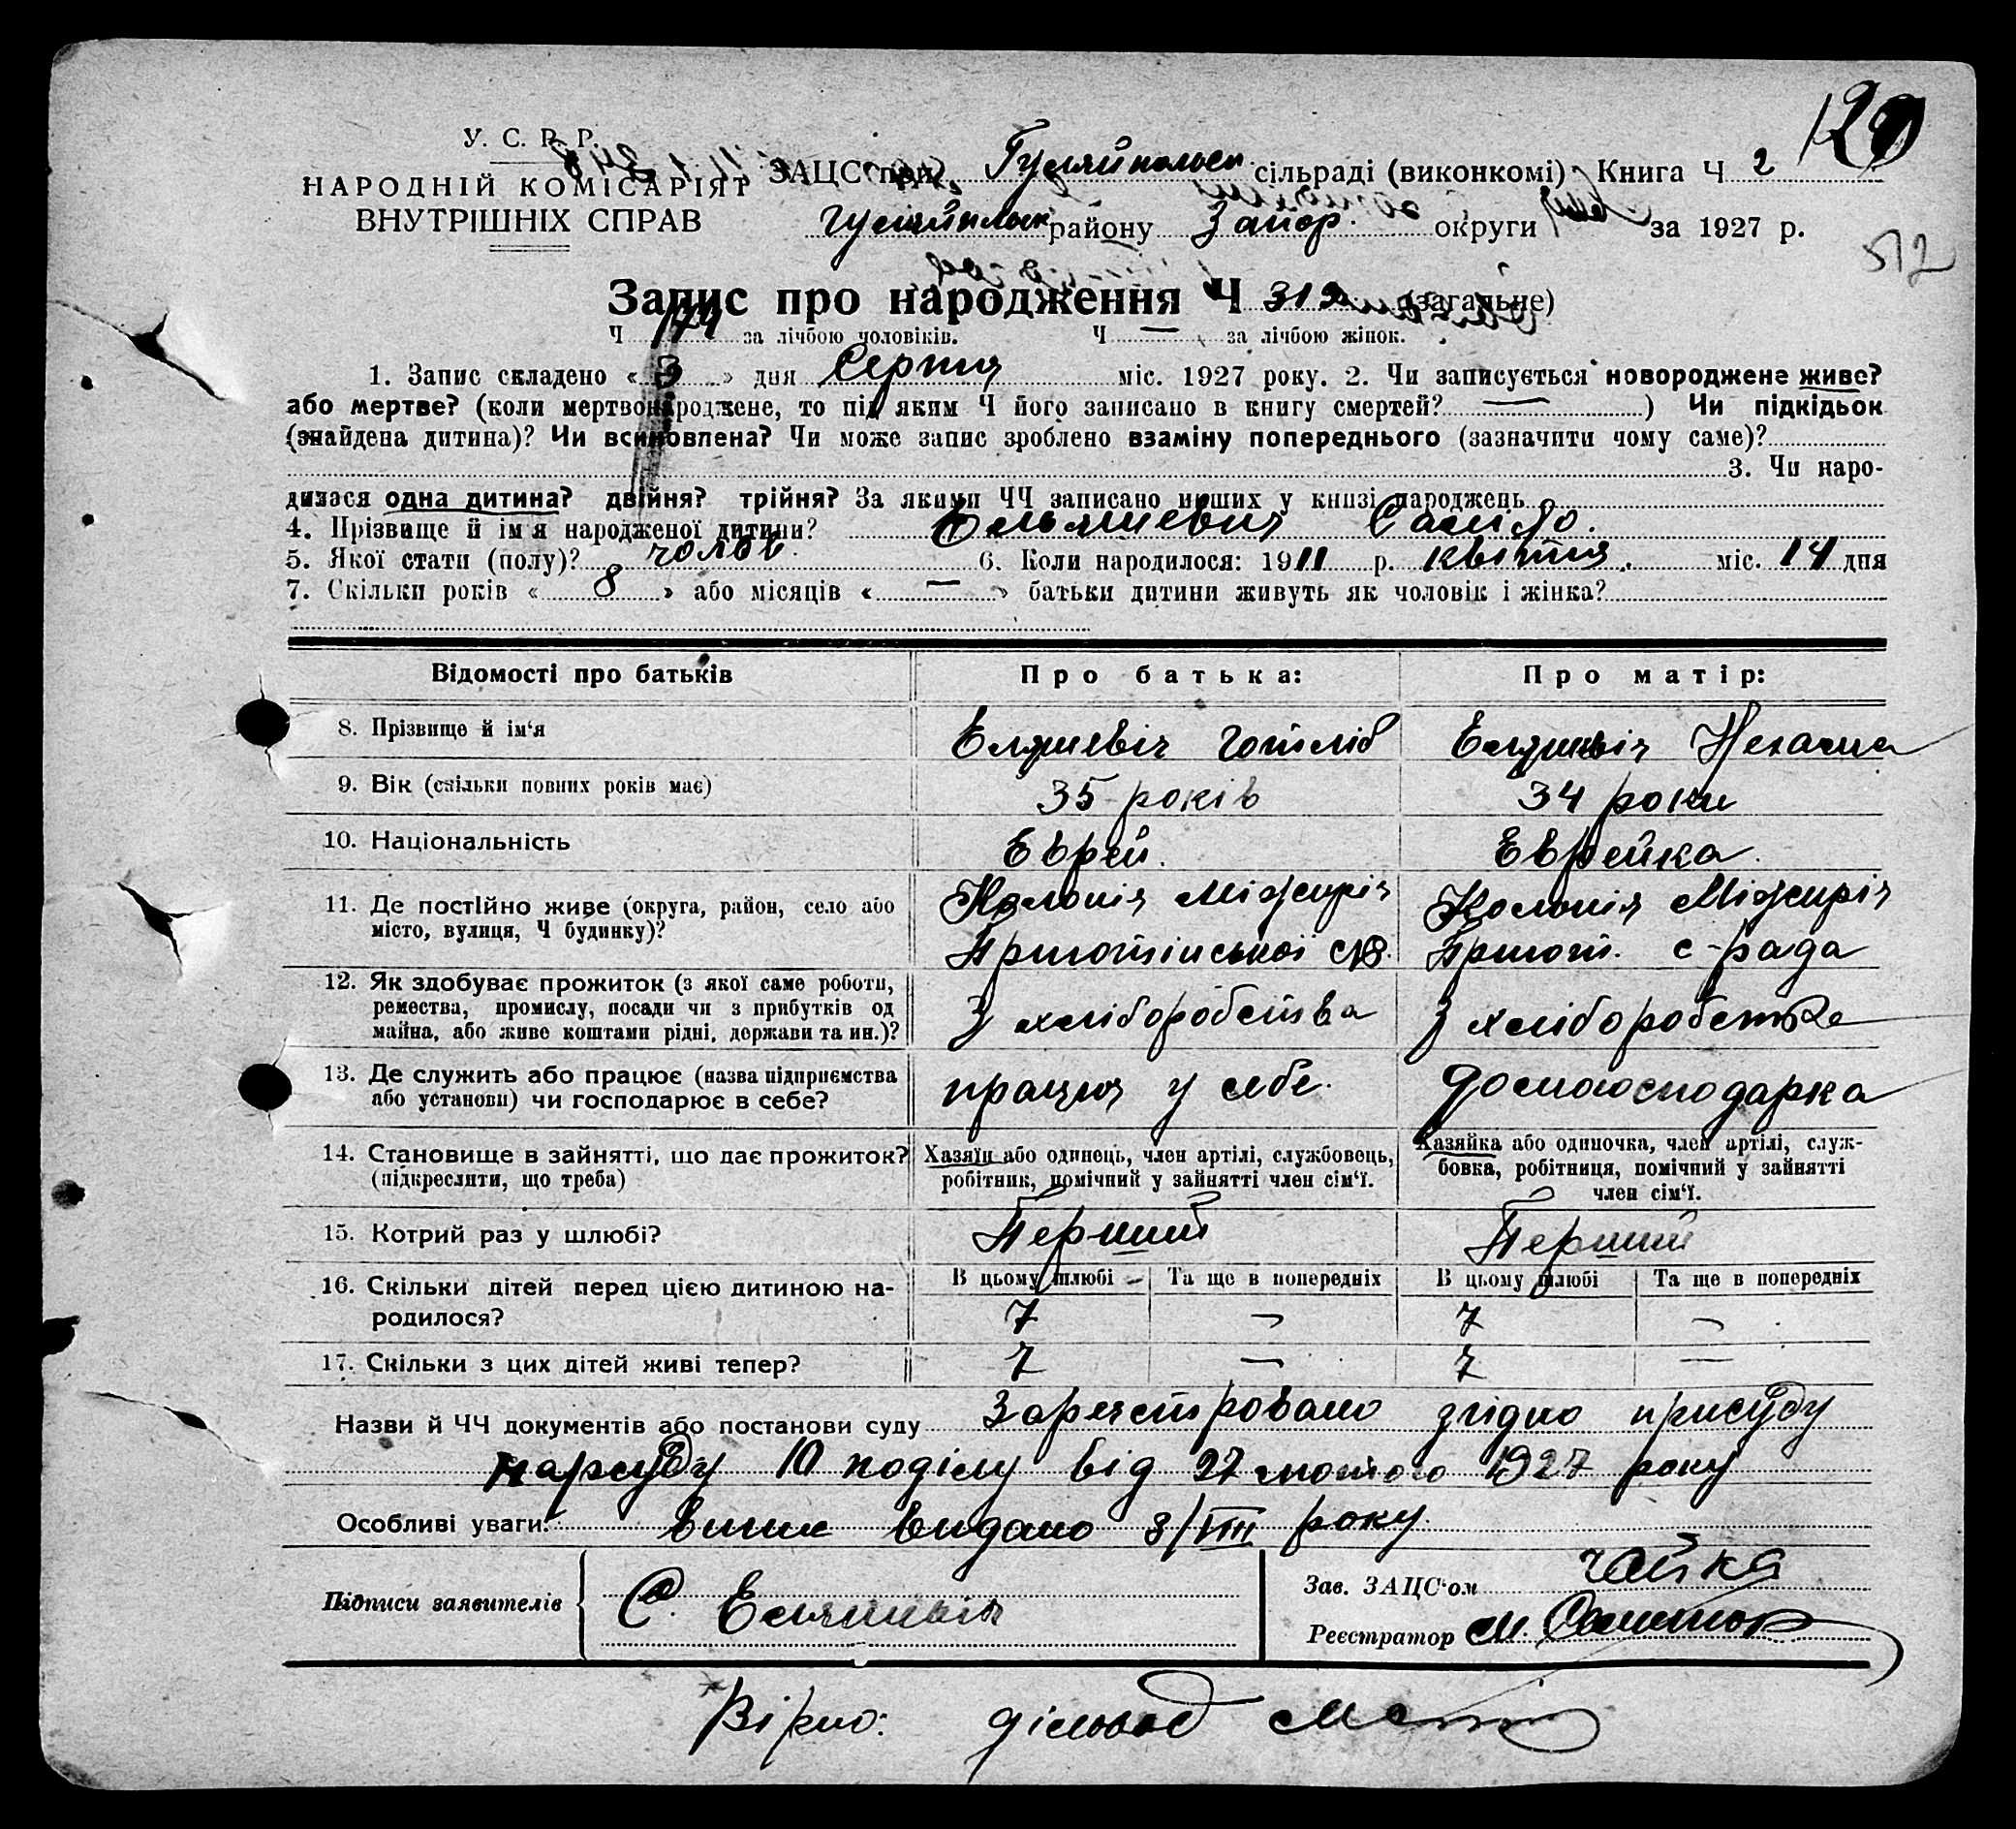 У. С. Р. Р.
НАРОДНІЙ КОМІСАРІЯТ
ВНУТРІШНІХ СПРАВ
120
ЗАЦС при Гуляйпольск сільраді (виконкомі) Книга Ч 2
Гуляйпільск району Запор. округи за 1927 р.
512
Запис про народження Ч 319 (загальне)
Ч 174 за лічбою чоловіків. Ч — за лічбою жінок.
1. Запис складено « 3 » дня Серпня міс. 1927 року. 2. Чи записується новороджене живе?
або мертве? (коли мертвонароджене, то під яким Ч його записано в книгу смертей? — ) Чи підкідьок
(знайдена дитина)? Чи всиновлена? Чи може запис зроблено взаміну попереднього (зазначити чому саме)?
3. Чи наро-
дилася одна дитина? двійня? трійня? За якими ЧЧ записано инших у книзі народжень
4. Прізвище й ім'я народженої дитини? Ельяшевич
5. Якої стати (полу)? чолов. 6. Коли народилося: 1911 р. квітня. міс. 14 дня
7. Скільки років « 8 » або місяців « — » батьки дитини живуть як чоловік і жінка?
Відомості про батьків Про батька: Про матір:
8. Прізвище й ім'я Еляшевіч Готліб Еляшевіч Нехама
9. Вік (скільки повних років має) 35 років 34 роки
10. Національність Еврей. Еврейка.
11. Де постійно живе (округа, район, село або Колонія Міжирія Колонія Міжирія
місто, вулиця, Ч будинку)? с-рада
12. Як здобуває прожиток (з якої саме роботи,
ремества, промислу, посади чи з прибутків од З хліборобства З хліборобства
майна, або живе коштами рідні, держави та ин.)?
13. Де служить або працює (назва підприємства
або установи) чи господарює в себе? працює у себе. домогосподарка
14. Становище в зайнятті, що дає прожиток? Хазяїн або одинець, член артілі, службовець, Хазяйка або одиночка, член артілі, служ-
(підкреслити, що треба) робітник, помічний у зайнятті член сім'ї. бовка, робітниця, помічний у зайнятті
член сім'ї.
15. Котрий раз у шлюбі? Перший Перший
16. Скільки дітей перед цією дитиною на- В цьому шлюбі Та ще в попередніх В цьому шлюбі Та ще в попередніх
родилося? 7 — 7 —
17. Скільки з цих дітей живі тепер? 7 — 7 —
Назви й ЧЧ документів або постанови суду Зареєстровано згідно присуду
нарсуду 10 поділу від 27 лютого 1927 року
Особливі уваги: видано 3/VIII року
Підписи заявителів С. Еляшевіч
Зав. ЗАЦС'ом Чайка
Реєстратор М.
Вірно: діловод